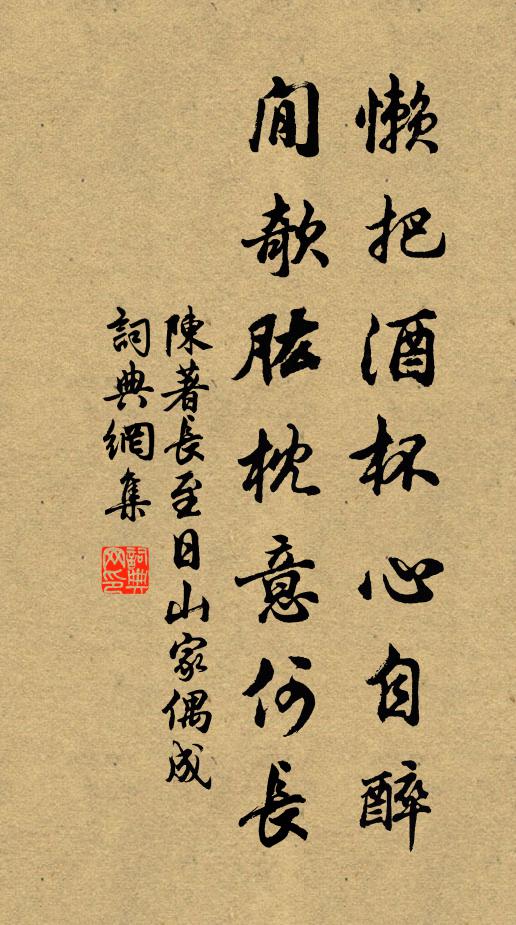 懶把酒杯心自醉
閒欹肱枕意何長
陳著長至日山家偶成
詞典網集
詞典網印